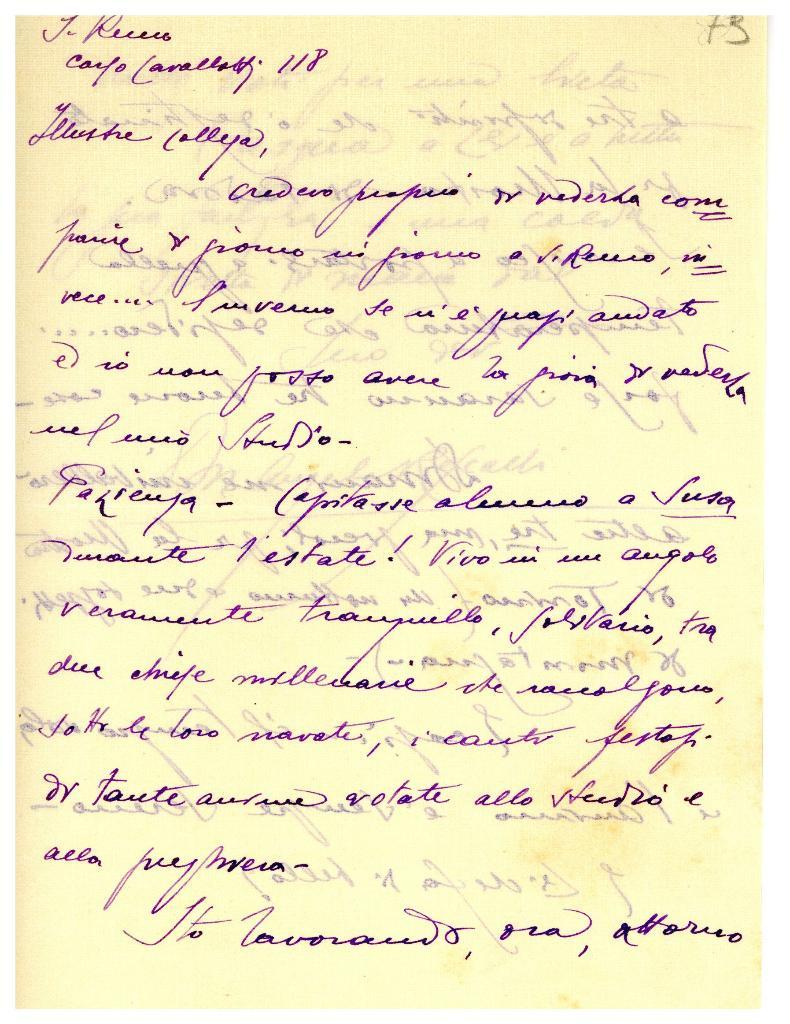 73
S. Remo
corso Cavallotti 118
Illustre Collega,
Credevo proprio di vederla com=
parire di giorno in giorno a S. Remo, in=
vece.... l'inverno se n'è quasi andato
ed io non posso avere la gioia di vederla
nel mio Studio -
Pazienza - Capitasse almeno a Susa
durante l'estate! Vivo in un angolo
veramente tranquillo, solitario, tra
due chiese millenarie che raccolgono,
sotto le loro navate, i canti festosi
di tante anime votate allo studio e
alla preghiera -
Sto lavorando, ora, attorno